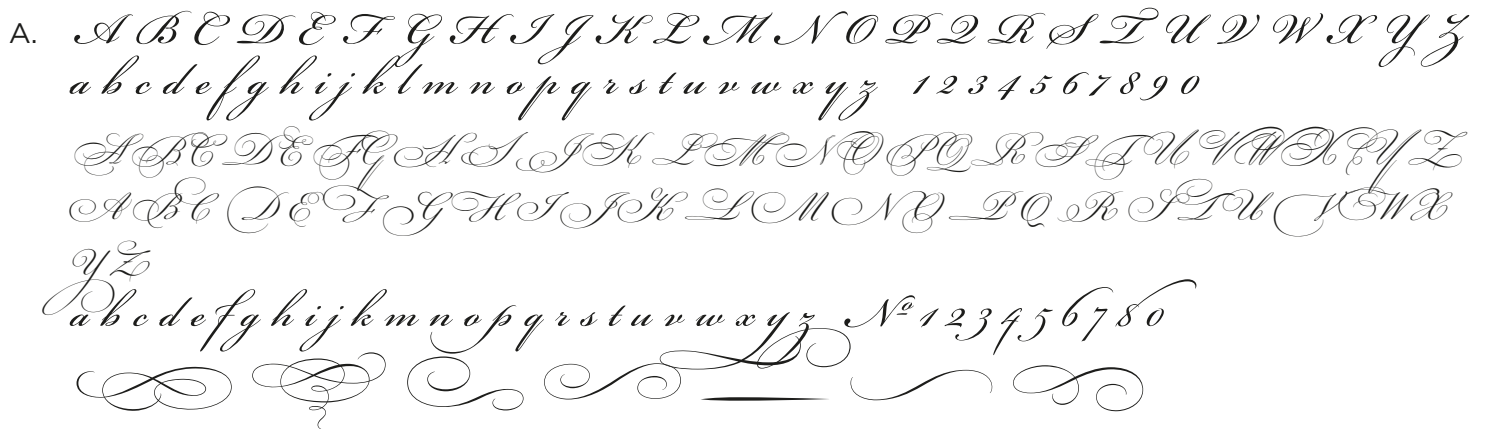 A. A B C D E F G H I J K L M N O P Q R S T U V W X Y Z
a b c d e f g h i j k l m n o p q r s t u v w x y z 1 2 3 4 5 6 7 8 9 0
A B C D E F G H I J K L M N O P Q R S T U V W X Y Z
A B C D E F G H I J K L M N O P Q R S T U V W X
Y Z
a b c d e f g h i j k m n o p q r s t u v w x y z Nº 1 2 3 4 5 6 7 8 0